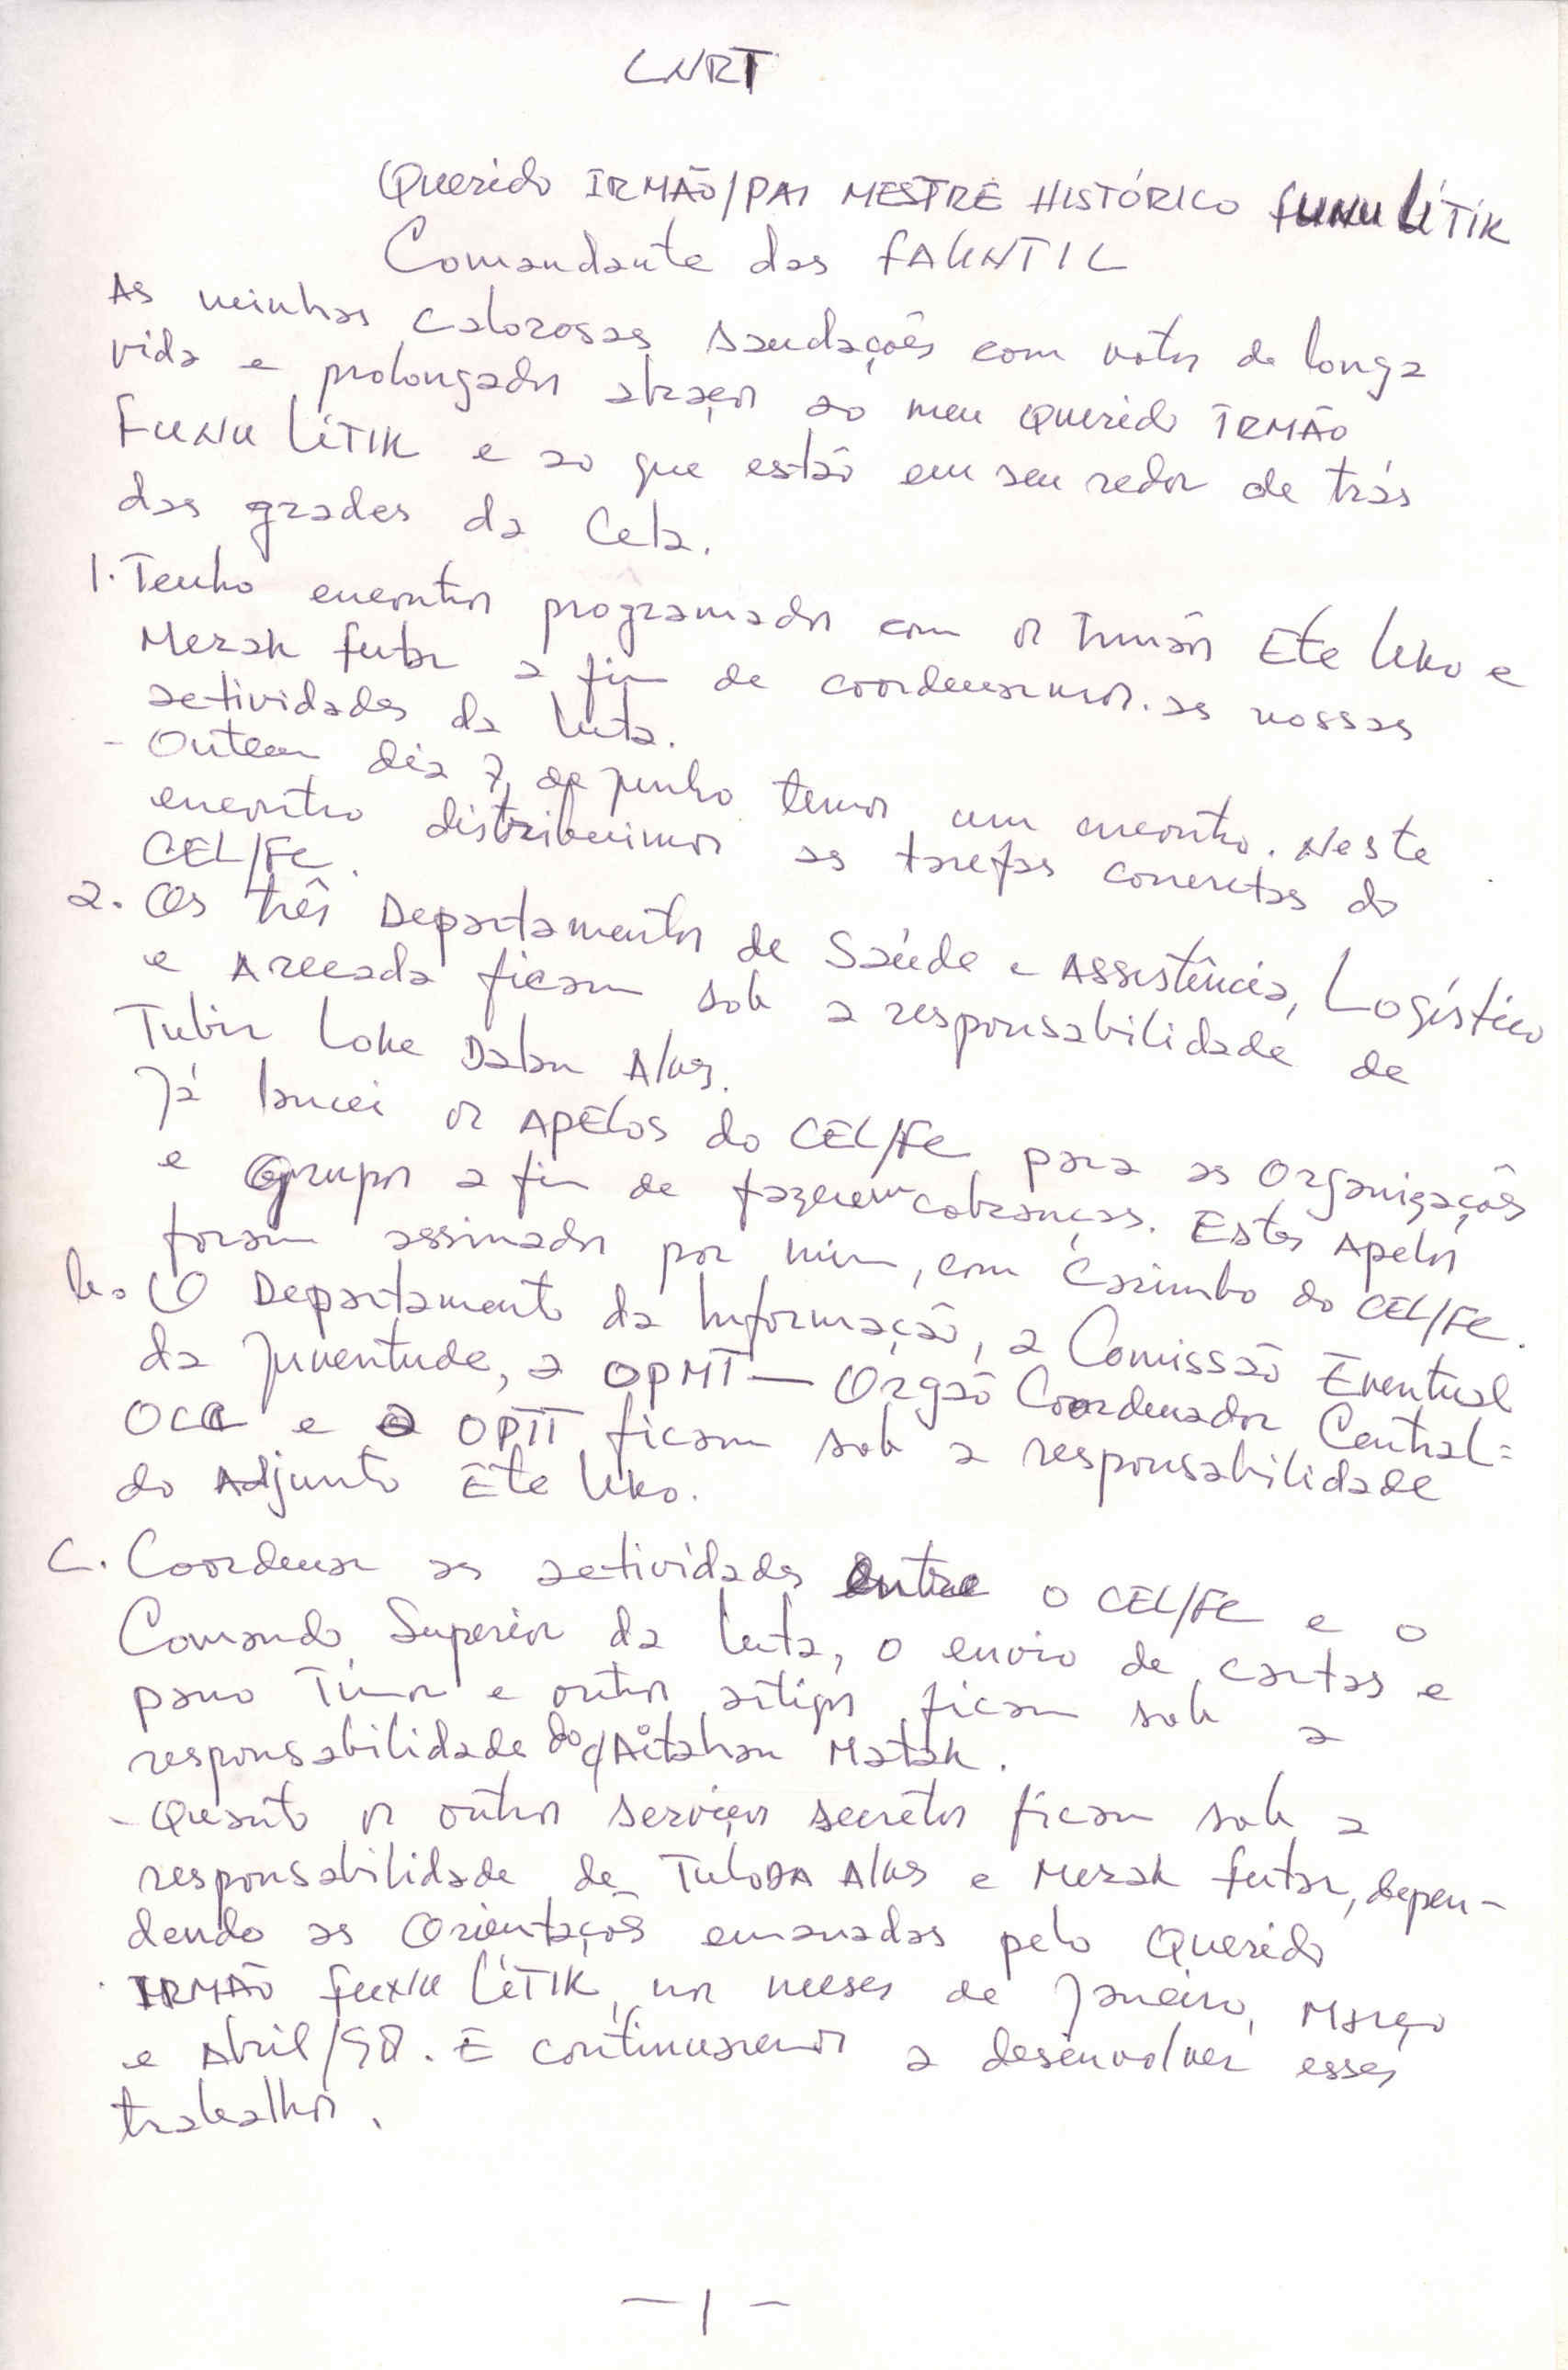 CNRT
Querido IRMÃO/PAI MESTRE HISTÓRICO FUNU LÍTIK
Comandante das FALINTIL
As minhas calorosas saudações com votos de longa
vida e prolongados abraços ao meu Querido IRMÃO
FUNU LÍTIK e ao que estão em seu redor de trás
das grades da Cela.
1. Tenho encontros programados com os Irmãos Ete Uko e
Merak Futar a fim de coordenarmos as nossas
actividades da luta.
- Ontem dia 7 de Junho temos um encontro. Neste
encontro distribuimos as tarefas concretas do
CEL/FC.
a. Os três Departamentos de Saúde e Assistência, Logístico
e Arecada ficam sob a responsabilidade de
Tubir Loke Dalan Alus.
Já lancei os APELOS do CEL/FC para as Organizações
e Grupos a fim de fazerem cobranças. Estes Apelos
foram assinados por mim, com Carimbo do CEL/FC.
b. O Departamento da Informação, a Comissão Eventual
da Juventude, a OPMT — Orgão Coordenador Central =
OCC e a OPTT ficam sob a responsabilidade
do Adjunto Ete Uko.
C. Coordenar as actividades entre o CEL/FC e o
Comando Superior da Luta, o envio de cartas e
pano Timor e outros artigos ficam sob a
responsabilidade do c/Aitahan Matak.
- Quanto os outros serviços secretos ficam sob a
responsabilidade de Tulosa Alus e Merak Futar, depen-
dendo as Orientações emanadas pelo Querido
IRMÃO FUNU LÍTIK, nos meses de Janeiro, Março
e Abril/98. E continuaremos a desenvolver esses
trabalhos.
- 1 -